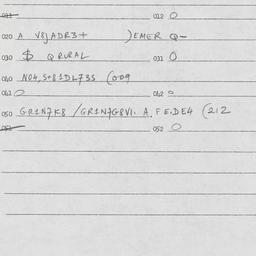 011 012 0
020 A V8JADR3+ )EMER Q-
030 $ Q RURAL 031 0
040 NO4,5+81DL735 (009
061 0 062 0
050 GR1N7K8 /GR1N7G8VI. A. FE.DE4 (212
051 052 0